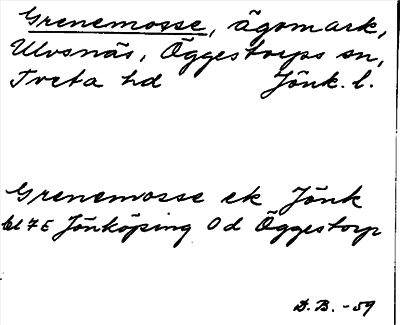 Grenemosse, ägomark,
Ulvsnäs, Öggestorps sn,
Tveta hd Jönk. l.
Grenemosse ek Jönk
bl 7E Jönköping Od Öggestorp
D.B. -59